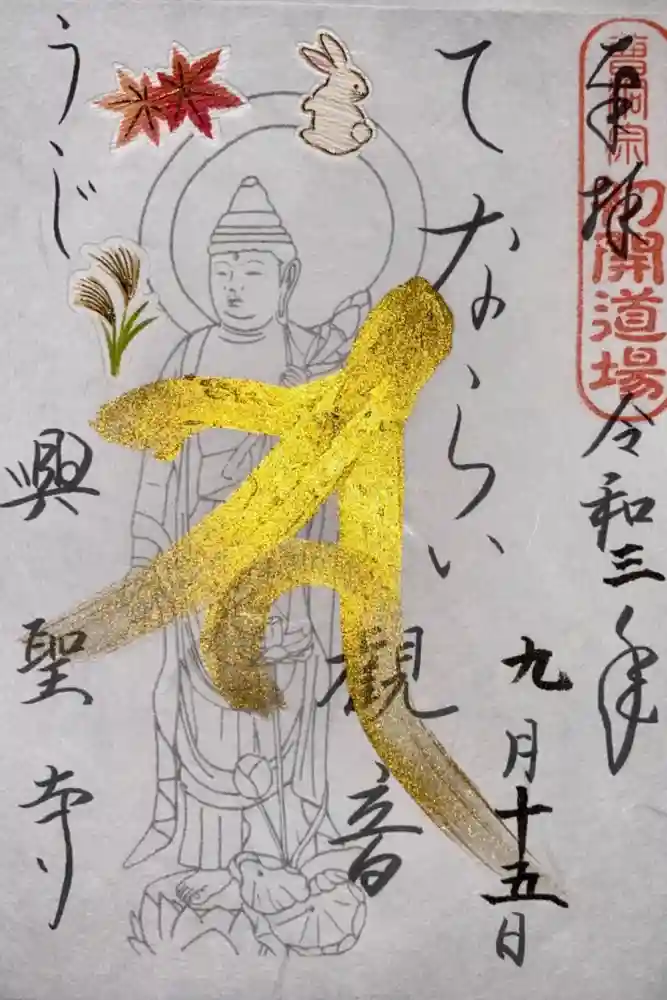 奉拝
曹洞宗
初開道場
令和三年
九月十五日
てならい
觀音
うじ
興聖寺